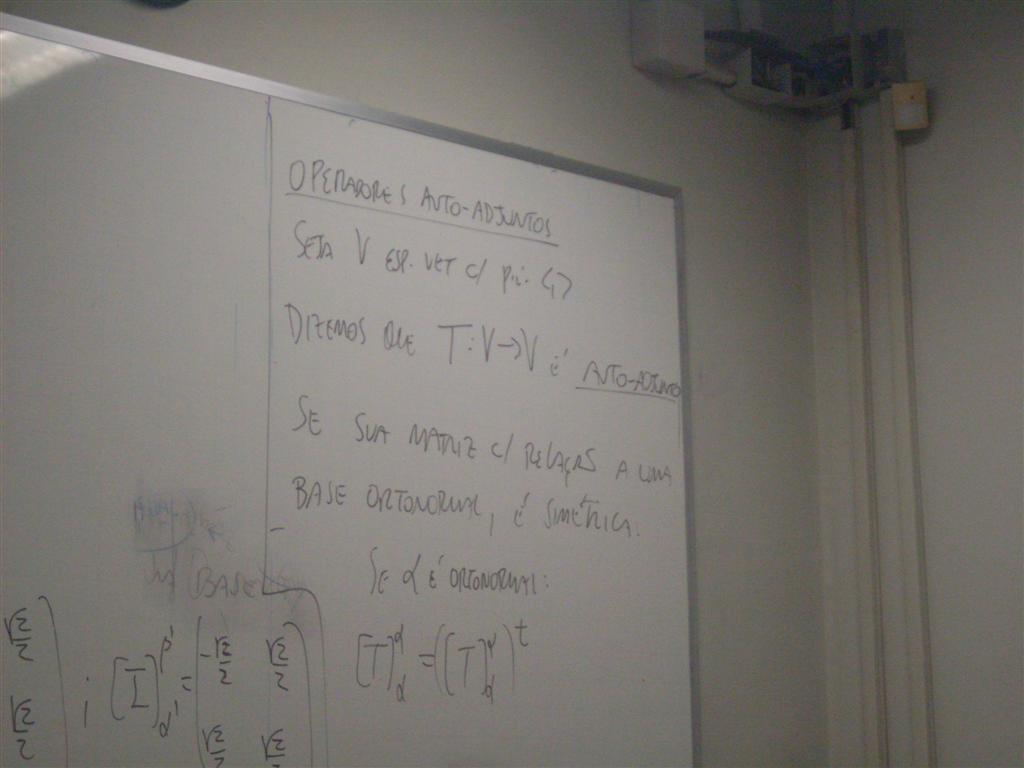 OPERADORES AUTO-ADJUNTOS
SEJA V ESP. VET C/ p.i. <,>
DIZEMOS QUE T: V → V É AUTO-ADJUNTO
SE SUA MATRIZ C/ RELAÇÃO A UMA
BASE ORTONORMAL, É SIMÉTRICA.
SE α É ORTONORMAL:
[T]^α_α = ([T]^α_α)^t
(BASE
√2/2 ) ; [I]^β'_α' = ( -√2/2 √2/2 )
√2/2 √2/2 √2/2